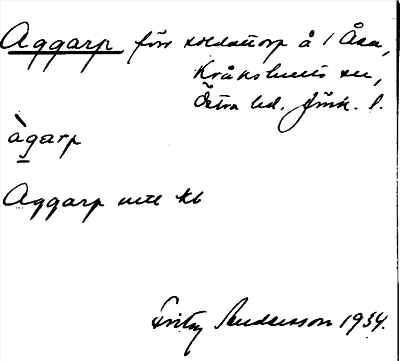 Aggarp förr soldattorp å 1 Åsa,
Kråkshults sn,
Östra hd. Jönk. l.
àgarp
Aggarp enl. kb
Fritz Andersson 1934.